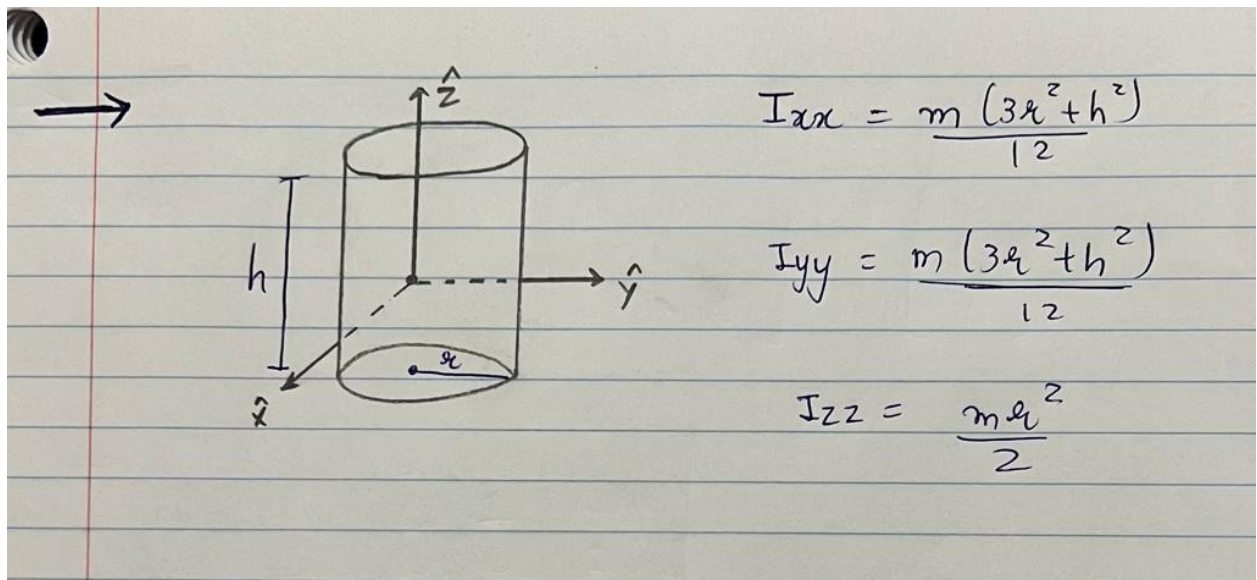 ẑ
h
ŷ
r
x̂
Ixx = m (3r² + h²) / 12
Iyy = m (3r² + h²) / 12
Izz = mr² / 2